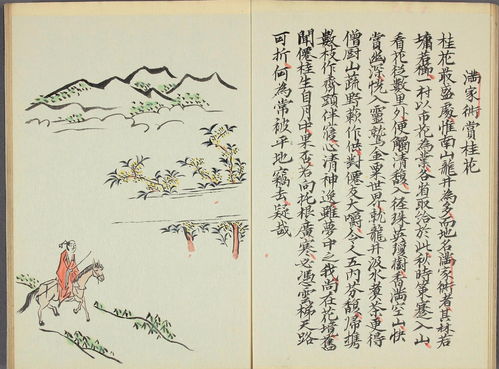 滿家衖賞桂花
桂花最盛處惟南山龍井為多而地名滿家衖者其林若
墉若櫛一村以市花為業各省取給於此秋時策蹇入山
看花從數里外便觸清馥入徑珠英瓊樹香滿空山快
賞幽深恍入靈鷲金粟世界就龍井汲水煑茶更得
僧廚山蔬野蔌作供對僊友大嚼令人五內芬馥歸携
數枝作齋頭伴寢心清神逸雖夢中之我尚在花境舊
聞僊桂生自月中果否若向托根廣寒必憑雲梯天路
可折何為常被平地竊去疑哉